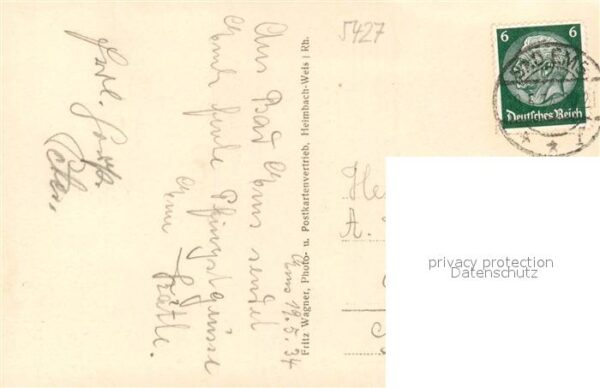 5427
6 6
BAD EMS
Deutsches Reich
Ems 19.5.34
Aus Bad Ems sendet
Euch frohe Pfingstgrüsse
Eure
Käthe.
Herzl.
Fritz Wagner, Photo- u. Postkartenvertrieb, Heimbach-Weis / Rh.
He
A.
privacy protection
Datenschutz